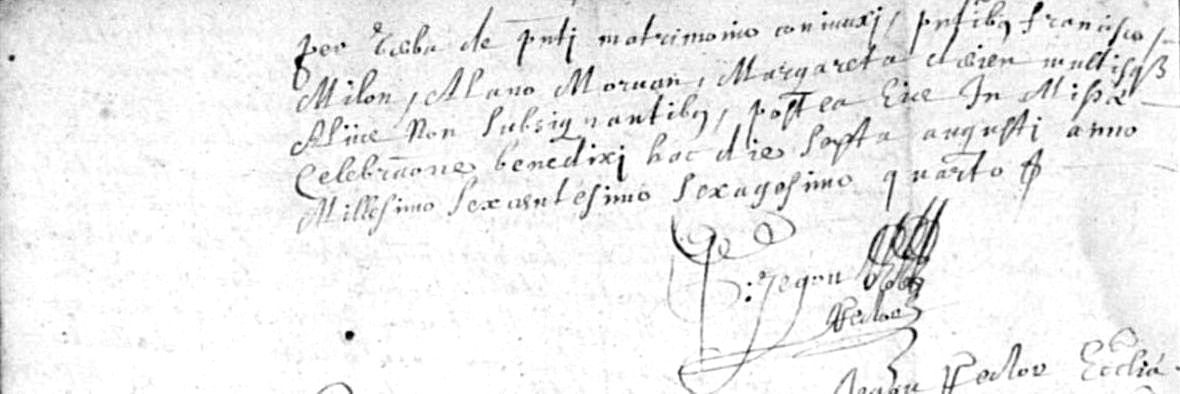 per verba de pnti matrimonio coniunxi, pntibq Francisco
Milon, Alano Moruan, Margareta multisqz
Aliis non subsignantibq, postea Eise In Missae
Celebraone benedixi hac die sexta augusti anno
Millesimo sexcentesimo sexagesimo quarto
P: Jegou
Rector
Jegou Rector Ecclia